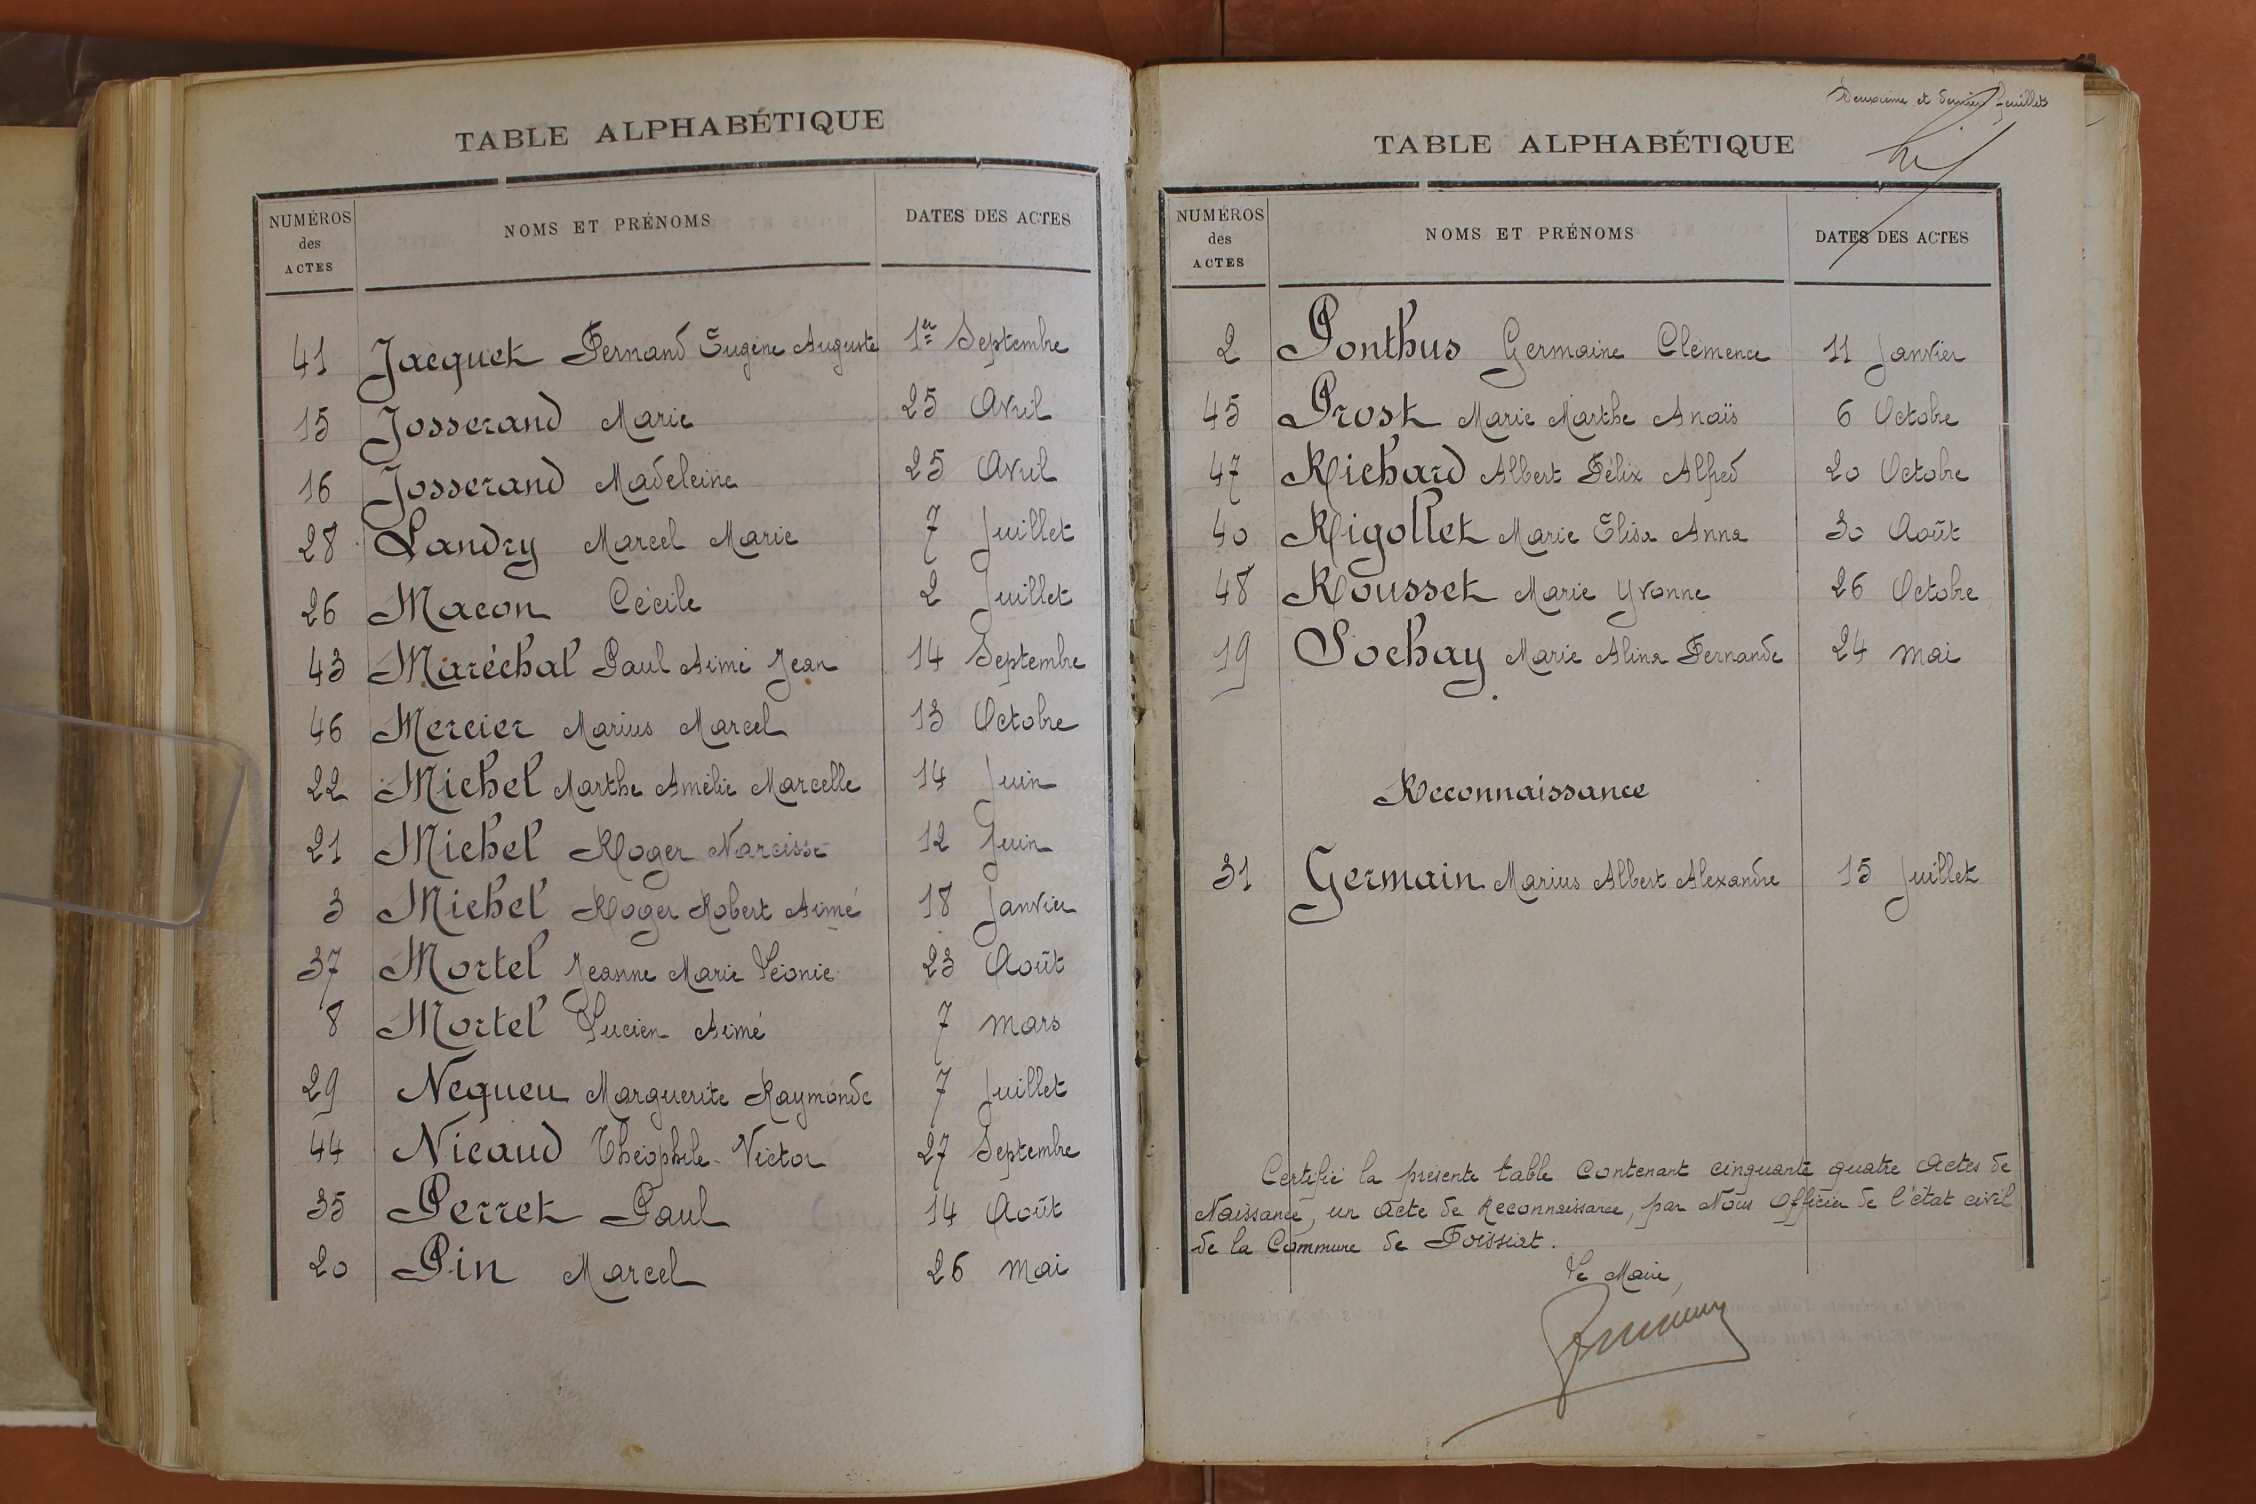 TABLE ALPHABÉTIQUE
NUMÉROS des ACTES NOMS ET PRÉNOMS DATES DES ACTES
41 Jacquet Fernand Eugène Auguste 1er Septembre
15 Josserand Marie 25 Avril
16 Josserand Madeleine 25 Avril
28 Landry Marcel Marie 7 Juillet
26 Macon Cécile 2 Juillet
43 Maréchal Paul Aimé Jean 14 Septembre
46 Mercier Marius Marcel 13 Octobre
22 Michel Marthe Amélie Marcelle 14 Juin
21 Michel Roger Narcisse 12 Juin
3 Michel Roger Robert Aimé 18 Janvier
37 Mortel Jeanne Marie Léonie 23 Août
8 Mortel Lucien Aimé 7 Mars
29 Nequeu Marguerite Raymonde 7 Juillet
44 Nicaud Théophile Victor 27 Septembre
35 Perret Paul 14 Août
20 Pin Marcel 26 Mai
Deuxième et dernier feuillets
TABLE ALPHABÉTIQUE
NUMÉROS des ACTES NOMS ET PRÉNOMS DATES DES ACTES
2 Ponthus Germaine Clémence 11 Janvier
45 Prost Marie Marthe Anaïs 6 Octobre
47 Richard Albert Félix Alfred 20 Octobre
40 Rigollet Marie Elisa Anna 30 Août
48 Rousset Marie Yvonne 26 Octobre
19 Sochay Marie Alina Fernande 24 Mai
Reconnaissance
31 Germain Marius Albert Alexandre 15 Juillet
Certifié la présente table contenant cinquante quatre actes de
Naissance, un acte de Reconnaissance, par Nous Officier de l'état civil
de la Commune de Foissiat.
Le Maire,